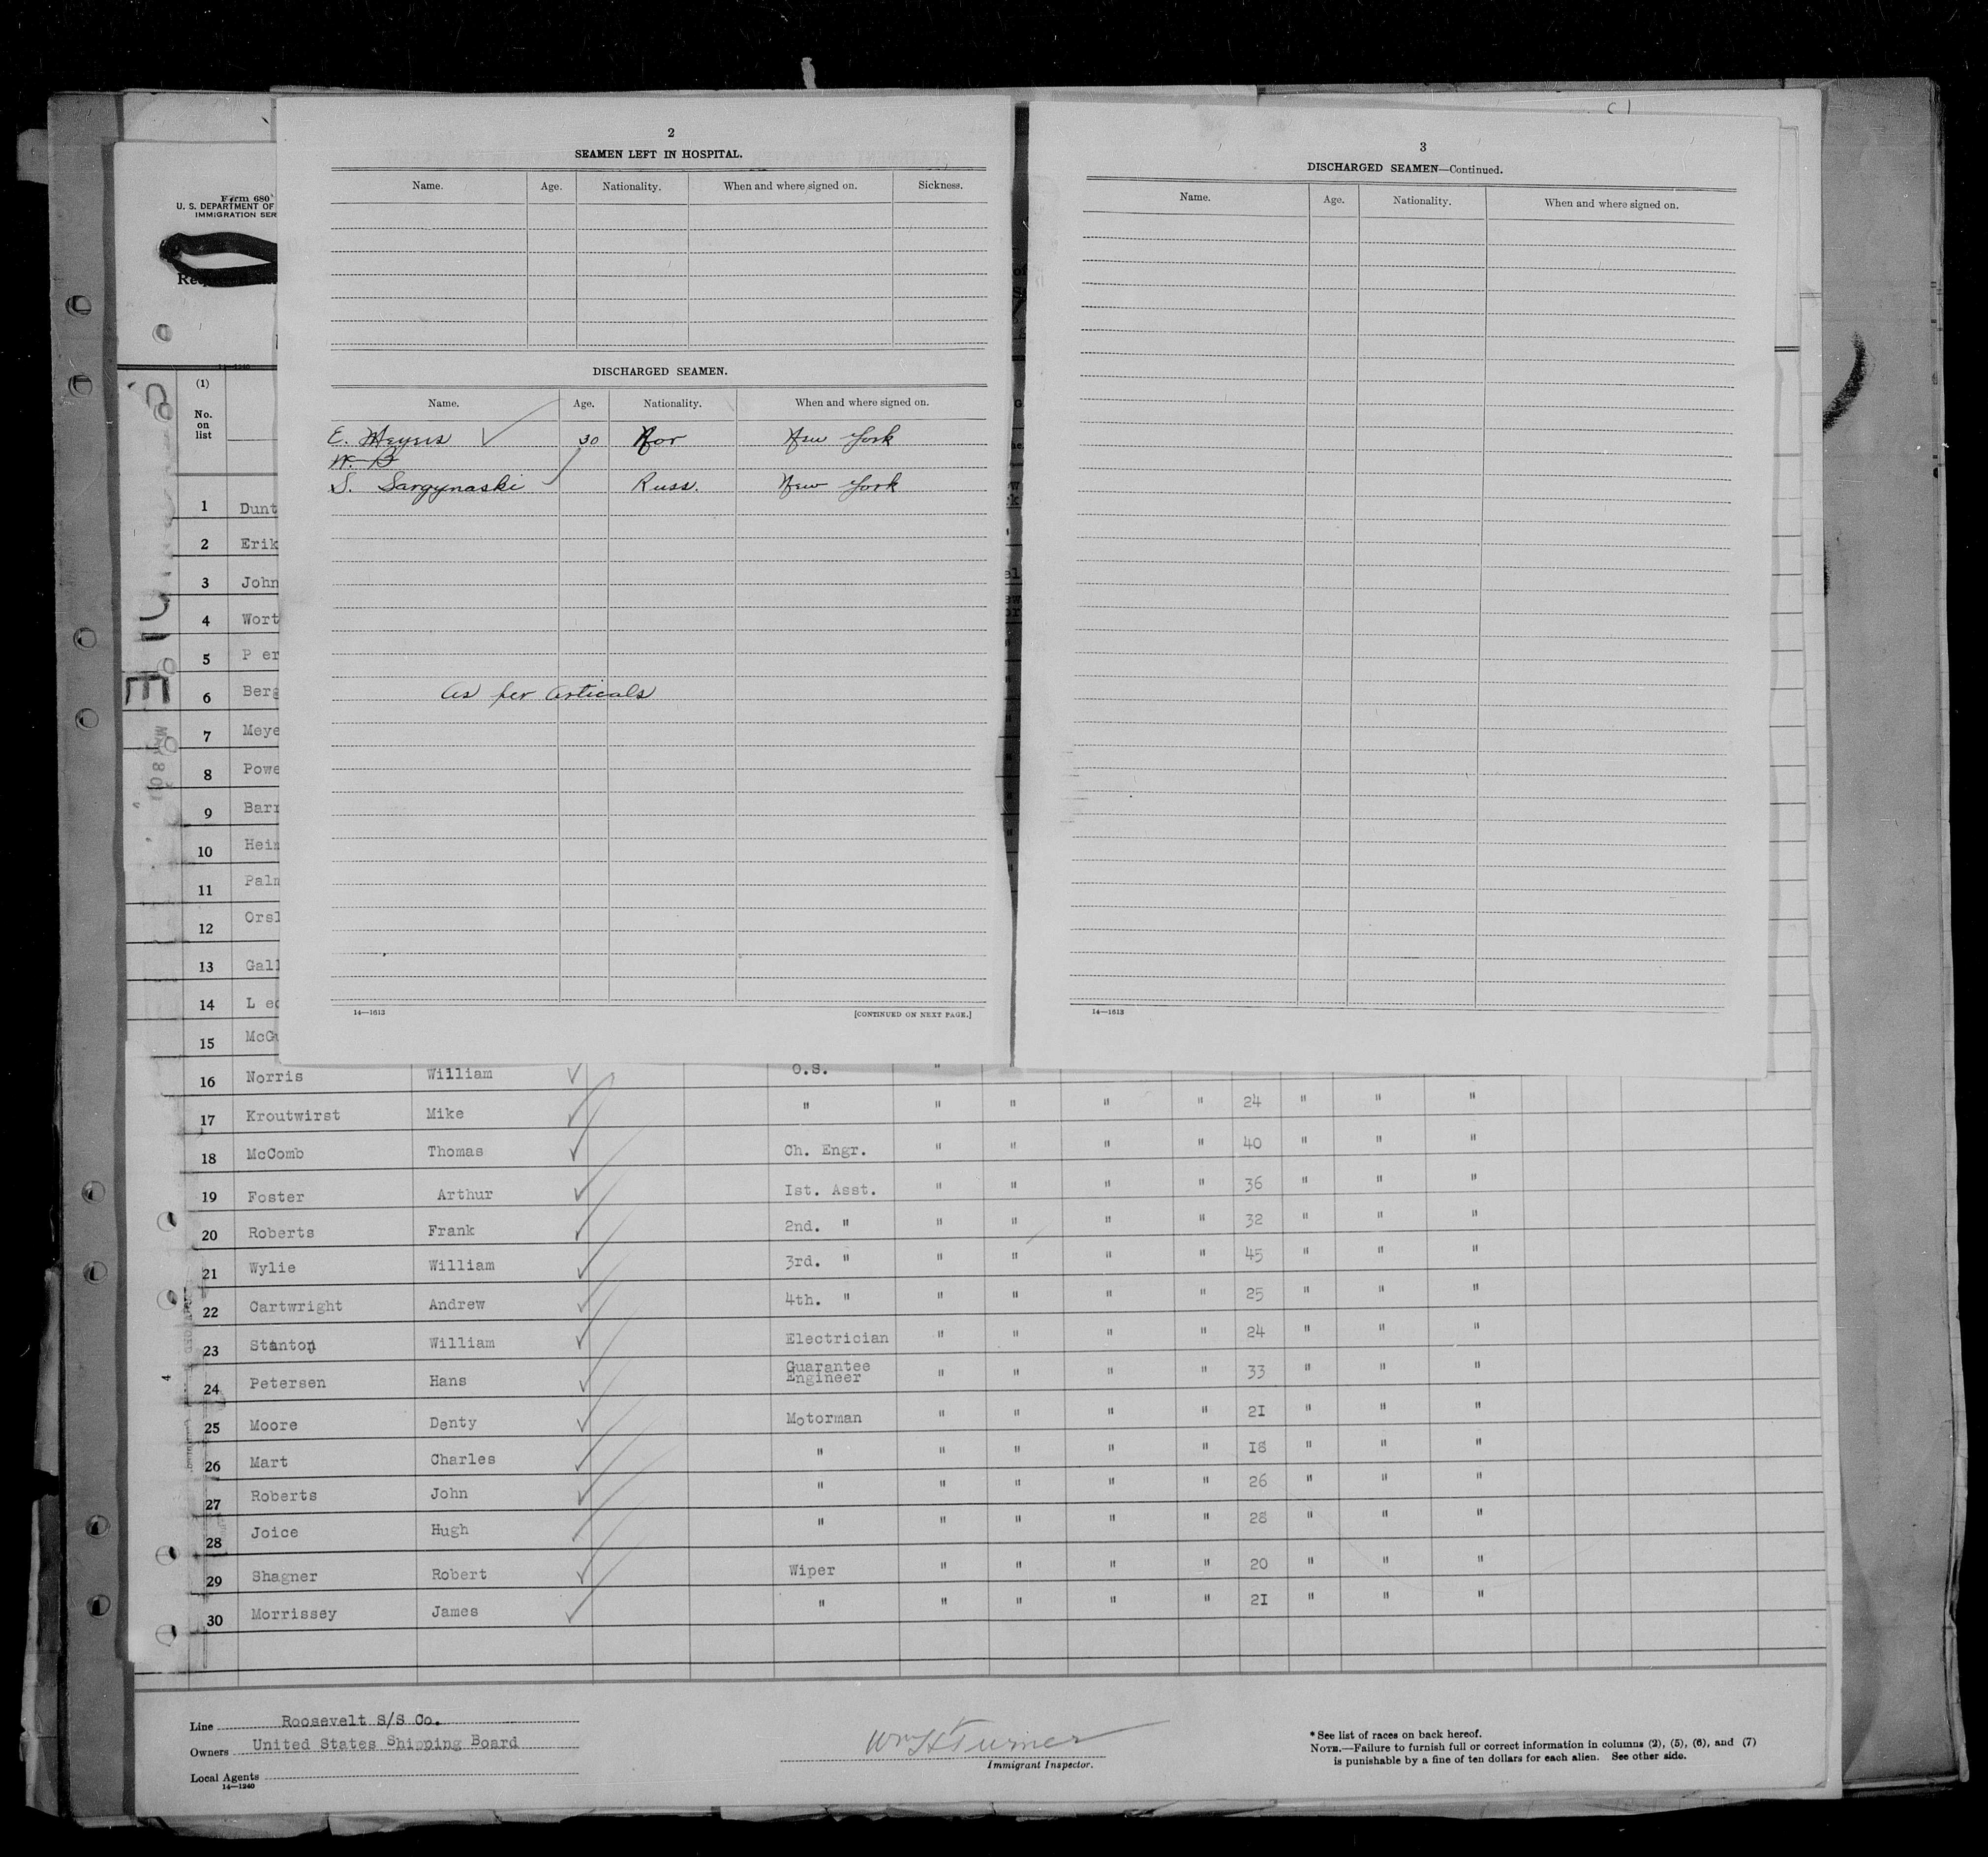 2
SEAMEN LEFT IN HOSPITAL.
Name. Age. Nationality. When and where signed on. Sickness.
DISCHARGED SEAMEN.
Name. Age. Nationality. When and where signed on.
E. Heyers 30 Nor New York
W. B
S. Sargynaski Russ. New York
As per articals
14—1613 [CONTINUED ON NEXT PAGE.]
3
DISCHARGED SEAMEN—Continued.
Name. Age. Nationality. When and where signed on.
14—1613
Form 680
U. S. DEPARTMENT OF
IMMIGRATION SER
(1)
No.
on
list
1 Dunt
2 Erik
3 John
4 Wort
5 P er
6 Berg
7 Meye
8 Powe
9 Barr
10 Hein
11 Palm
12 Orsl
13 Gall
14 L ed
15 McGu
16 Norris William O.S. "
17 Kroutwirst Mike " " " " " 24 " " "
18 McComb Thomas Ch. Engr. " " " " 40 " " "
19 Foster Arthur Ist. Asst. " " " " 36 " " "
20 Roberts Frank 2nd. " " " " " 32 " " "
21 Wylie William 3rd. " " " " " 45 " " "
22 Cartwright Andrew 4th. " " " " " 25 " " "
23 Stanton William Electrician " " " " 24 " " "
24 Petersen Hans Guarantee Engineer " " " " 33 " " "
25 Moore Denty Motorman " " " " 2I " " "
26 Mart Charles " " " " " I8 " " "
27 Roberts John " " " " " 26 " " "
28 Joice Hugh " " " " " 28 " " "
29 Shagner Robert Wiper " " " " 20 " " "
30 Morrissey James " " " " " 2I " " "
Line Roosevelt S/S Co.
Owners United States Shipping Board
Local Agents
14—1240
Wm H Turner
Immigrant Inspector.
* See list of races on back hereof.
NOTE.—Failure to furnish full or correct information in columns (2), (5), (6), and (7)
is punishable by a fine of ten dollars for each alien. See other side.